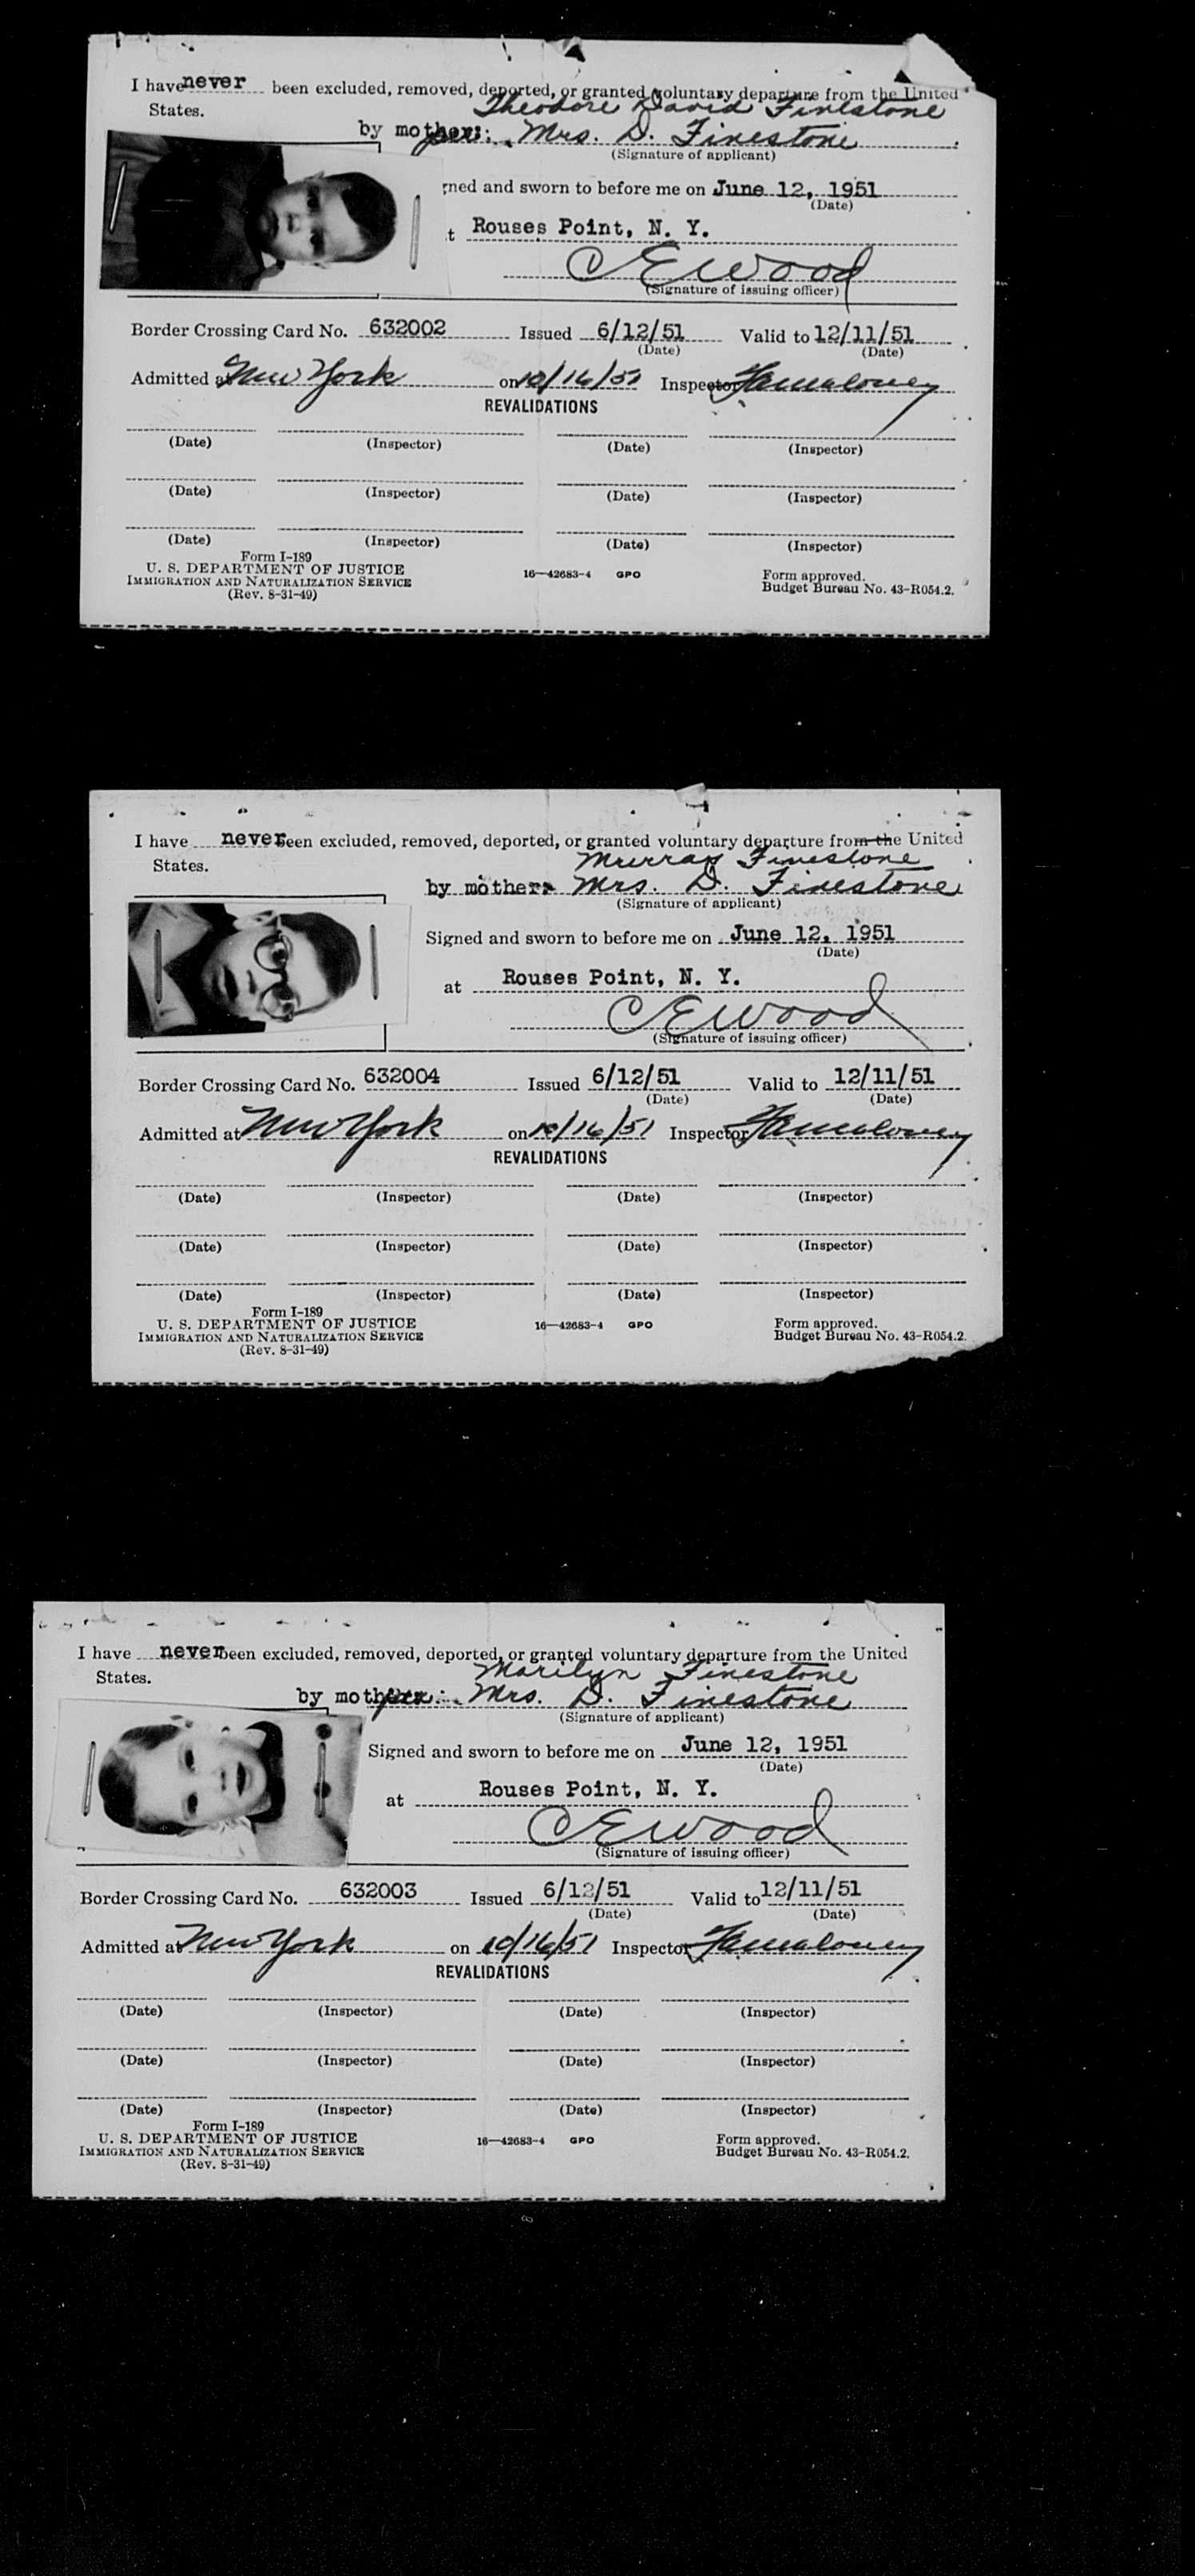 I have never been excluded, removed, deported, or granted voluntary departure from the United
States.
Theodore David Finestone
by mother: Mrs. D. Finestone
(Signature of applicant)
gned and sworn to before me on June 12, 1951
(Date)
t Rouses Point, N. Y.
C E Wood
(Signature of issuing officer)
Border Crossing Card No. 632002 Issued 6/12/51 Valid to 12/11/51
(Date) (Date)
Admitted at New York on 10/16/51 Inspector
REVALIDATIONS
(Date) (Inspector) (Date) (Inspector)
(Date) (Inspector) (Date) (Inspector)
(Date) (Inspector) (Date) (Inspector)
Form I-189
U. S. DEPARTMENT OF JUSTICE
IMMIGRATION AND NATURALIZATION SERVICE
(Rev. 8-31-49)
16—42683-4 GPO
Form approved.
Budget Bureau No. 43-R054.2.
I have never been excluded, removed, deported, or granted voluntary departure from the United
States.
Murray Finestone
by mother: Mrs. D. Finestone
(Signature of applicant)
Signed and sworn to before me on June 12, 1951
(Date)
at Rouses Point, N. Y.
C E Wood
(Signature of issuing officer)
Border Crossing Card No. 632004 Issued 6/12/51 Valid to 12/11/51
(Date) (Date)
Admitted at New York on 10/16/51 Inspector
REVALIDATIONS
(Date) (Inspector) (Date) (Inspector)
(Date) (Inspector) (Date) (Inspector)
(Date) (Inspector) (Date) (Inspector)
Form I-189
U. S. DEPARTMENT OF JUSTICE
IMMIGRATION AND NATURALIZATION SERVICE
(Rev. 8-31-49)
16—42683-4 GPO
Form approved.
Budget Bureau No. 43-R054.2.
I have never been excluded, removed, deported, or granted voluntary departure from the United
States.
Marilyn Finestone
by mother: Mrs. D. Finestone
(Signature of applicant)
Signed and sworn to before me on June 12, 1951
(Date)
at Rouses Point, N. Y.
C E Wood
(Signature of issuing officer)
Border Crossing Card No. 632003 Issued 6/12/51 Valid to 12/11/51
(Date) (Date)
Admitted at New York on 10/16/51 Inspector
REVALIDATIONS
(Date) (Inspector) (Date) (Inspector)
(Date) (Inspector) (Date) (Inspector)
(Date) (Inspector) (Date) (Inspector)
Form I-189
U. S. DEPARTMENT OF JUSTICE
IMMIGRATION AND NATURALIZATION SERVICE
(Rev. 8-31-49)
16—42683-4 GPO
Form approved.
Budget Bureau No. 43-R054.2.